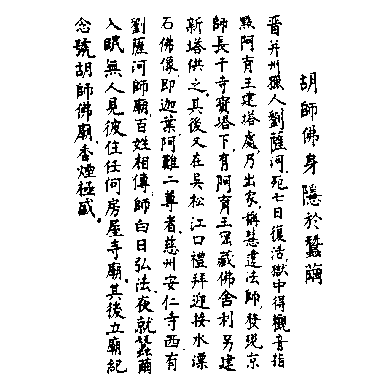 胡師佛身隱於蠶繭
晉并州獵人劉薩河，死七日復活，獄中得觀音指
點阿育王建塔處，乃出家，稱慧達法師，發現京
師長干寺寶塔下，有阿育王窟藏佛舍利，另建
新塔供之。其後又在吳松江口禮拜迎接水漂
石佛像，即迦葉阿難二尊者。慈州安仁寺西有
劉薩河師廟，百姓相傳師白日弘法，夜就蠶繭
入眠，無人見彼住任何房屋寺廟。其後立廟紀
念，號胡師佛廟，香煙極盛。